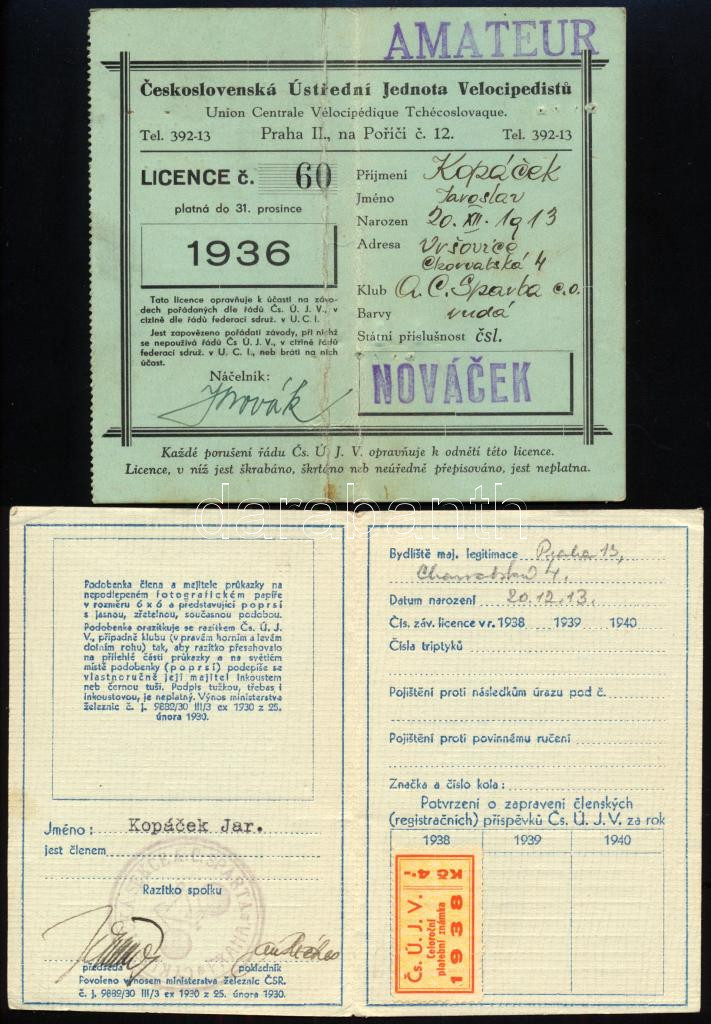 AMATEUR
Československá Ústřední Jednota Velocipedistů
Union Centrale Vélocipédique Tchécoslovaque.
Tel. 392-13 Praha II., na Poříčí č. 12. Tel. 392-13
LICENCE č. 60
platná do 31. prosince
1936
Tato licence opravňuje k účasti na závo-
dech pořádaných dle řádů Čs. Ú. J. V., v
cizině dle řádů federací sdruž. v U. C. I.
Jest zapovězeno pořádati závody, při nichž
se nepoužívá řádů Čs Ú. J. V., v cizině řádů
federací sdruž. v U. C. I., neb bráti na nich
účast.
Náčelník:
JNovák
Příjmení Kopáček
Jméno Jaroslav
Narozen 20. XII. 1913
Adresa Vršovice
Chorvatská 4
Klub A. C. Sparta c.o.
Barvy rudá
Státní příslušnost čsl.
NOVÁČEK
Každé porušení řádu Čs. Ú. J. V. opravňuje k odnětí této licence.
Licence, v níž jest škrabáno, škrtáno neb neúředně přepisováno, jest neplatna.
darabanth
Podobenka člena a majitele průkazky na
nepodlepeném fotografickém papíře
v rozměru 6×6 a představující poprsí
s jasnou, zřetelnou, současnou podobou.
Podobenka orazítkuje se razítkem Čs. Ú. J.
V., případně klubu (v pravém horním a levém
dolním rohu) tak, aby razítko přesahovalo
na přilehlé části průkazky a na světlém
místě podobenky (poprsí) podepíše se
vlastnoručně její majitel inkoustem
neb černou tuší. Podpis tužkou, třebas i
inkoustovou, je neplatný. Výnos ministerstva
železnic č. j. 9882/30 III/3 ex 1930 z 25.
února 1930.
Jméno: Kopáček Jar.
jest členem
Razítko spolku
předseda pokladník
Povoleno výnosem ministerstva železnic ČSR.
č. j. 9882/30 III/3 ex 1930 z 25. února 1930.
Bydliště maj. legitimace Praha 13,
Chorvatská 4.
Datum narození 20.12.13.
Čís. záv. licence v r. 1938 1939 1940
Čísla triptyků
Pojištění proti následkům úrazu pod č.
Pojištění proti povinnému ručení
Značka a číslo kola:
Potvrzení o zapravení členských
(registračních) příspěvků Čs. Ú. J. V. za rok
1938 1939 1940
Čs. Ú. J. V.
Celoroční
platební známka
1938
Kč 4.-